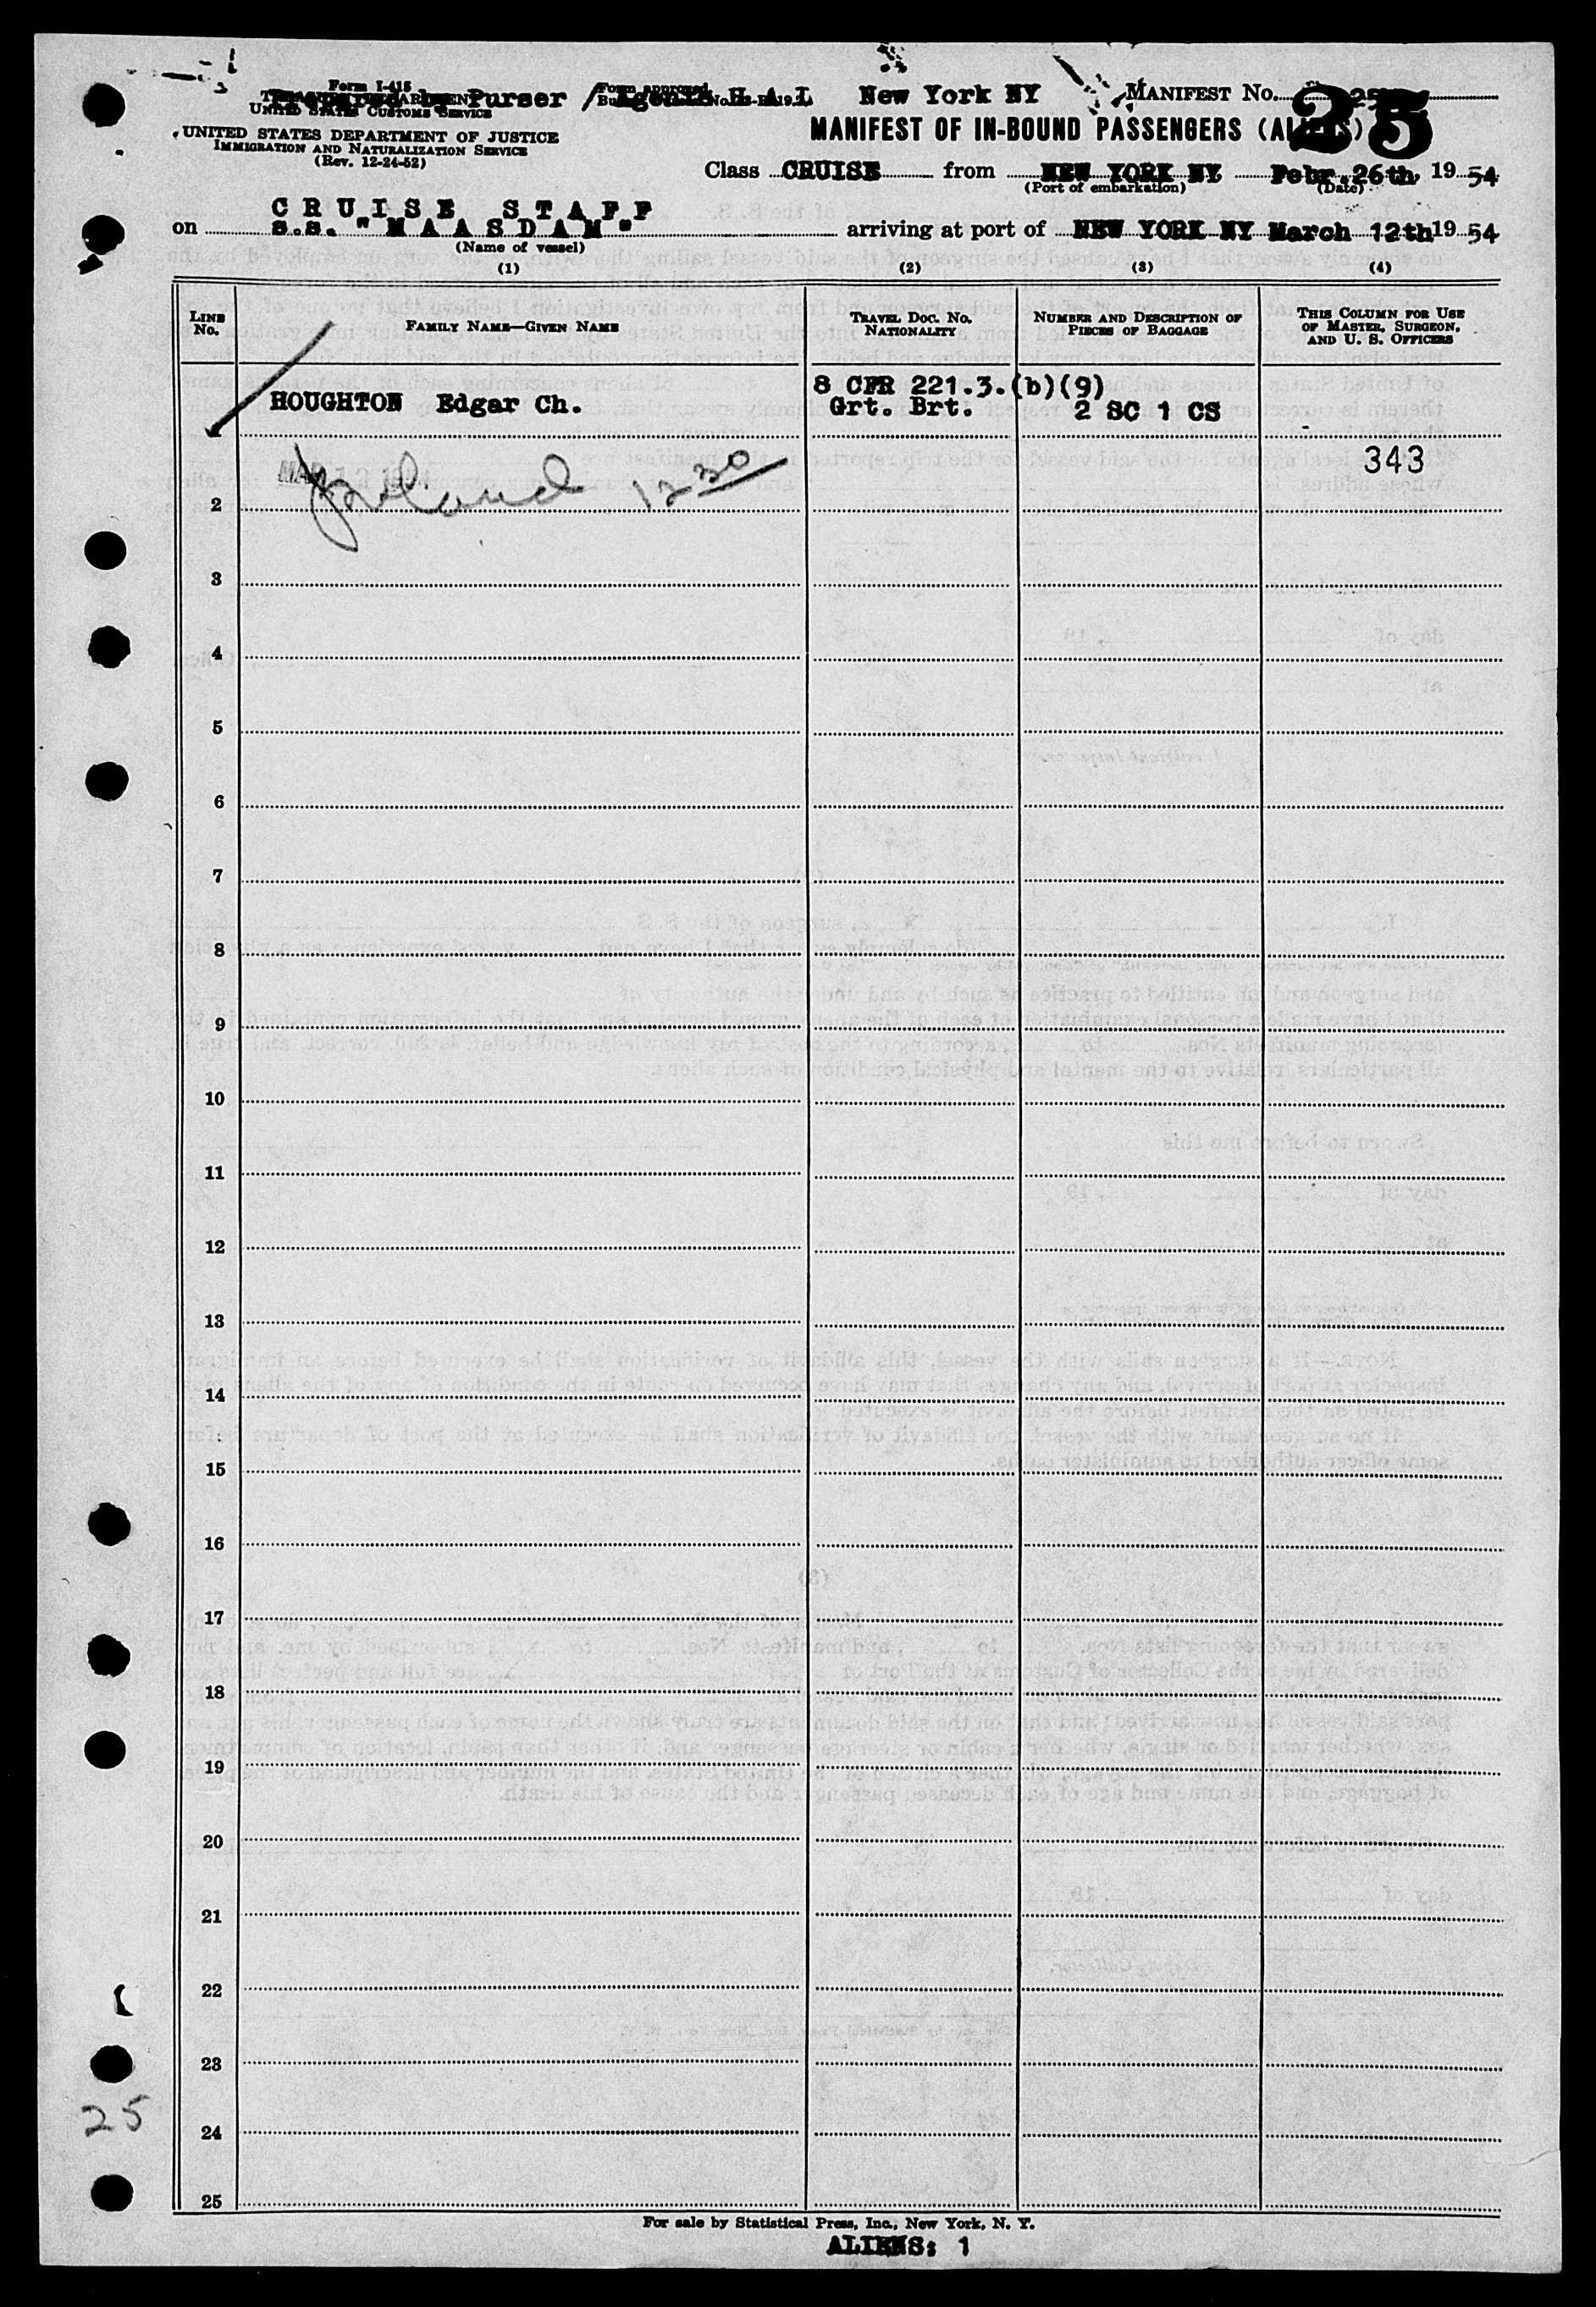 Form I-415
TREASURY DEPARTMENT
UNITED STATES CUSTOMS SERVICE
Prepared by Purser / Agents H.A.L New York NY
MANIFEST No. 25
UNITED STATES DEPARTMENT OF JUSTICE
IMMIGRATION AND NATURALIZATION SERVICE
(Rev. 12-24-52)
MANIFEST OF IN-BOUND PASSENGERS (ALIENS)
Class CRUISE from NEW YORK NY Febr. 26th, 19 54
(Port of embarkation) (Date)
CRUISE STAFF
on s.s. "MAASDAM" arriving at port of NEW YORK NY March 12th 19 54
(Name of vessel)
(1) (2) (3) (4)
LINE No.
FAMILY NAME—GIVEN NAME
TRAVEL DOC. No. NATIONALITY
NUMBER AND DESCRIPTION OF PIECES OF BAGGAGE
THIS COLUMN FOR USE OF MASTER, SURGEON, AND U. S. OFFICERS
8 CFR 221.3.(b)(9)
HOUGHTON Edgar Ch. Grt. Brt. 2 SC 1 CS
343
MAR 12 30
2
3
4
5
6
7
8
9
10
11
12
13
14
15
16
17
18
19
20
21
22
23
24
25
25
For sale by Statistical Press, Inc., New York, N. Y.
ALIENS: 1